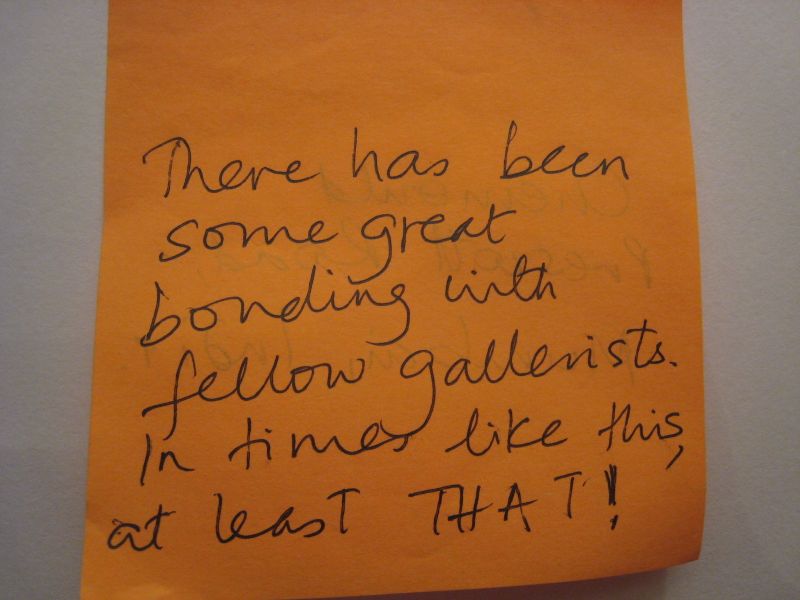 There has been
some great
bonding with
fellow gallerists.
In times like this,
at least THAT!